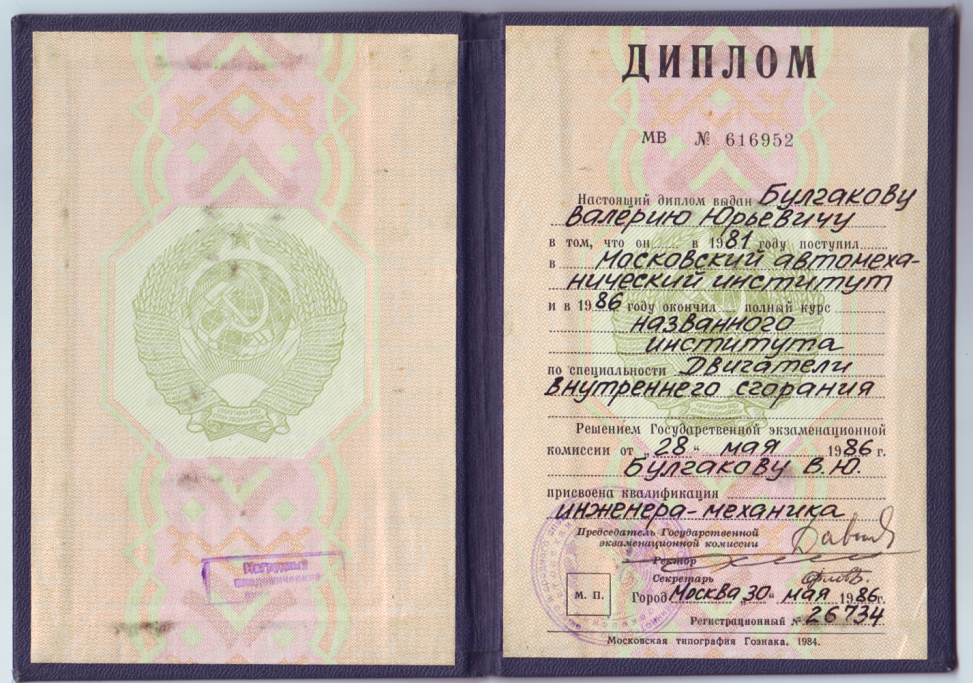 Нагрудный
ДИПЛОМ
МВ № 616952
Настоящий диплом выдан Булгакову
Валерию Юрьевичу
в том, что он в 1981 году поступил
в Московский автомеха-
нический институт
и в 1986 году окончил полный курс
названного
института
по специальности Двигатели
внутреннего сгорания
Решением Государственной экзаменационной
комиссии от „28“ мая 1986 г.
Булгакову В.Ю.
присвоена квалификация
инженера-механика
Председатель Государственной
экзаменационной комиссии
Ректор
Секретарь
М. П.
Город Москва, 30“ мая 1986г.
Регистрационный № 26734
Московская типография Гознака. 1984.